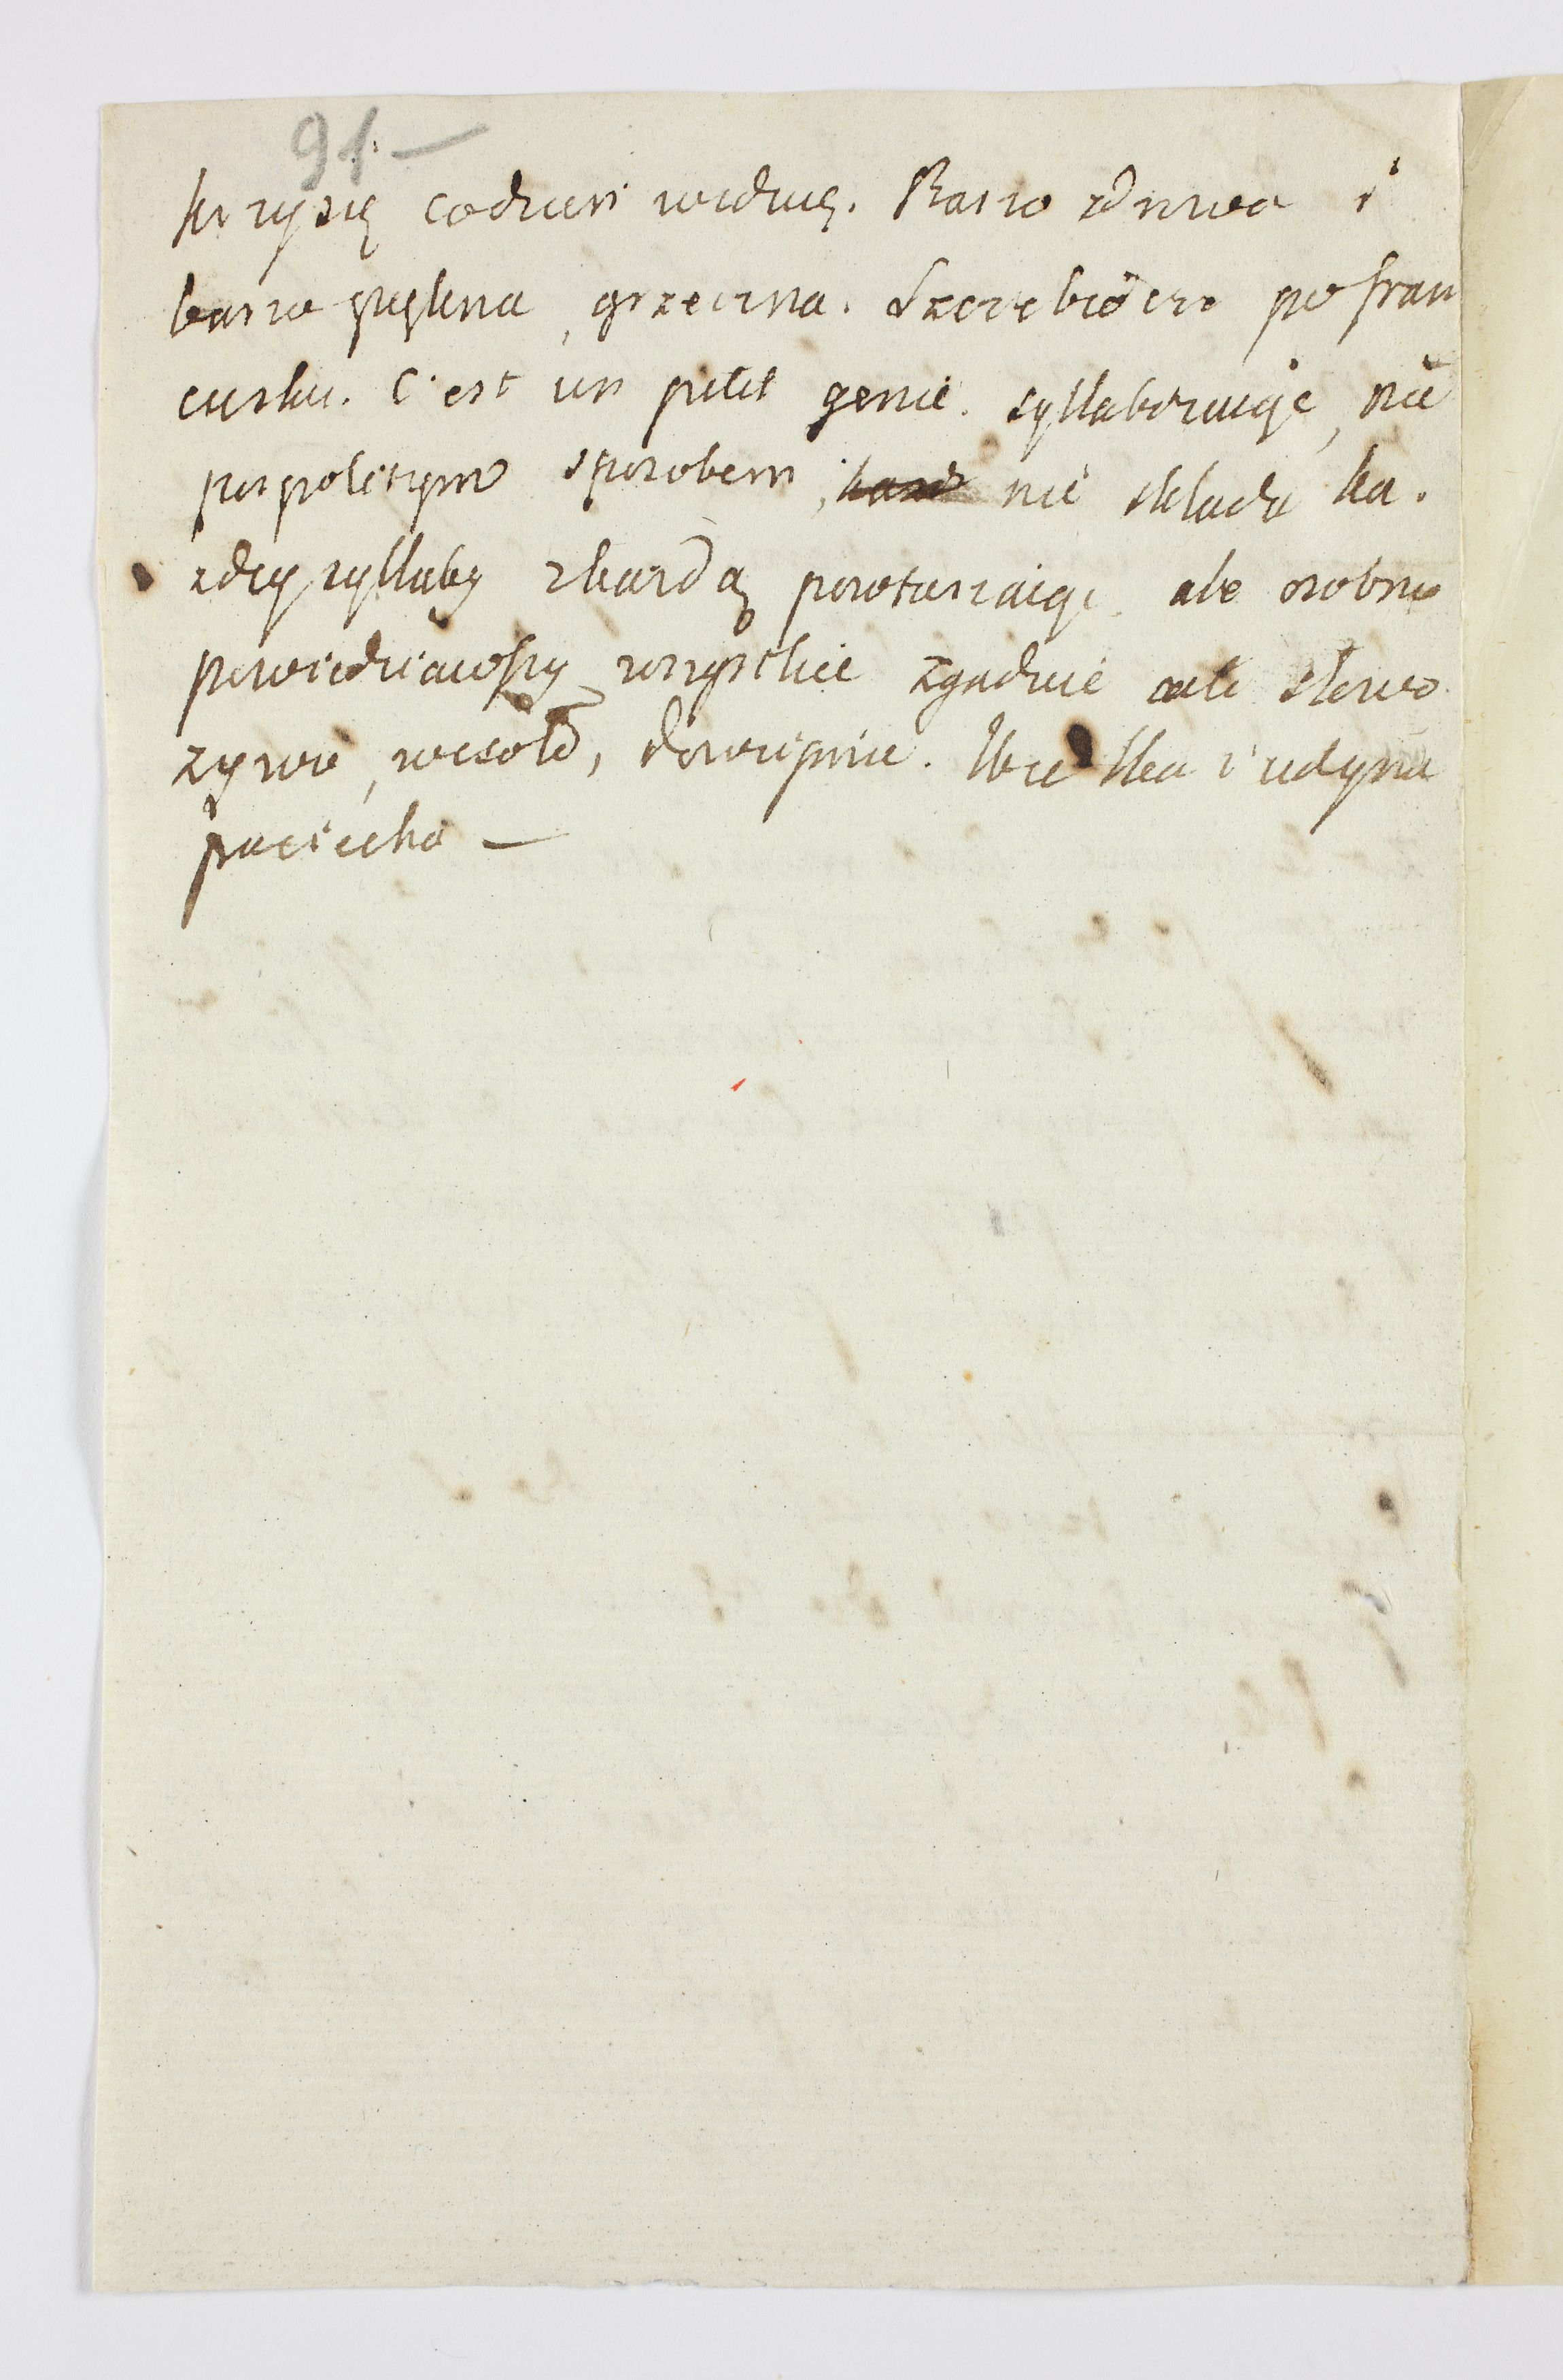 91 —
Krysię codzien widuię. Barzo zdrowa i
barzo piękna, grzeczna. Szczebiocze po fran
cusku. C'est un petit genie. syllabizuiąc, nie
pospolitym sposobem, nie sklada ka.
zdey syllaby z kazdą powtarzaiąc. ale osobno
powiedziawszy wszystkie zgadnie cale slowo
zywo, wesolo, dowcipnie. i iedyna
pociecha —